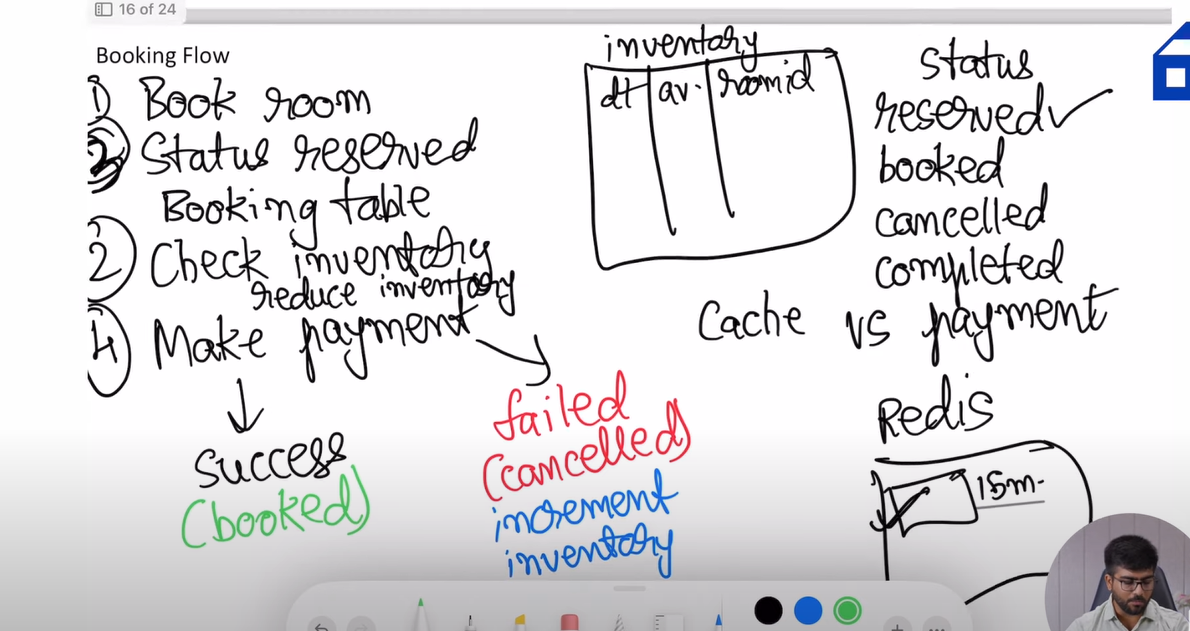 16 of 24
Booking Flow
1) Book room
3 Status reserved
Booking table
2 Check inventory
reduce inventory
4 Make payment
success
(booked)
failed
(cancelled)
increment
inventory
inventory
dt av. roomid
Status
reserved✓
booked
cancelled
completed
Cache vs payment
Redis
15m.